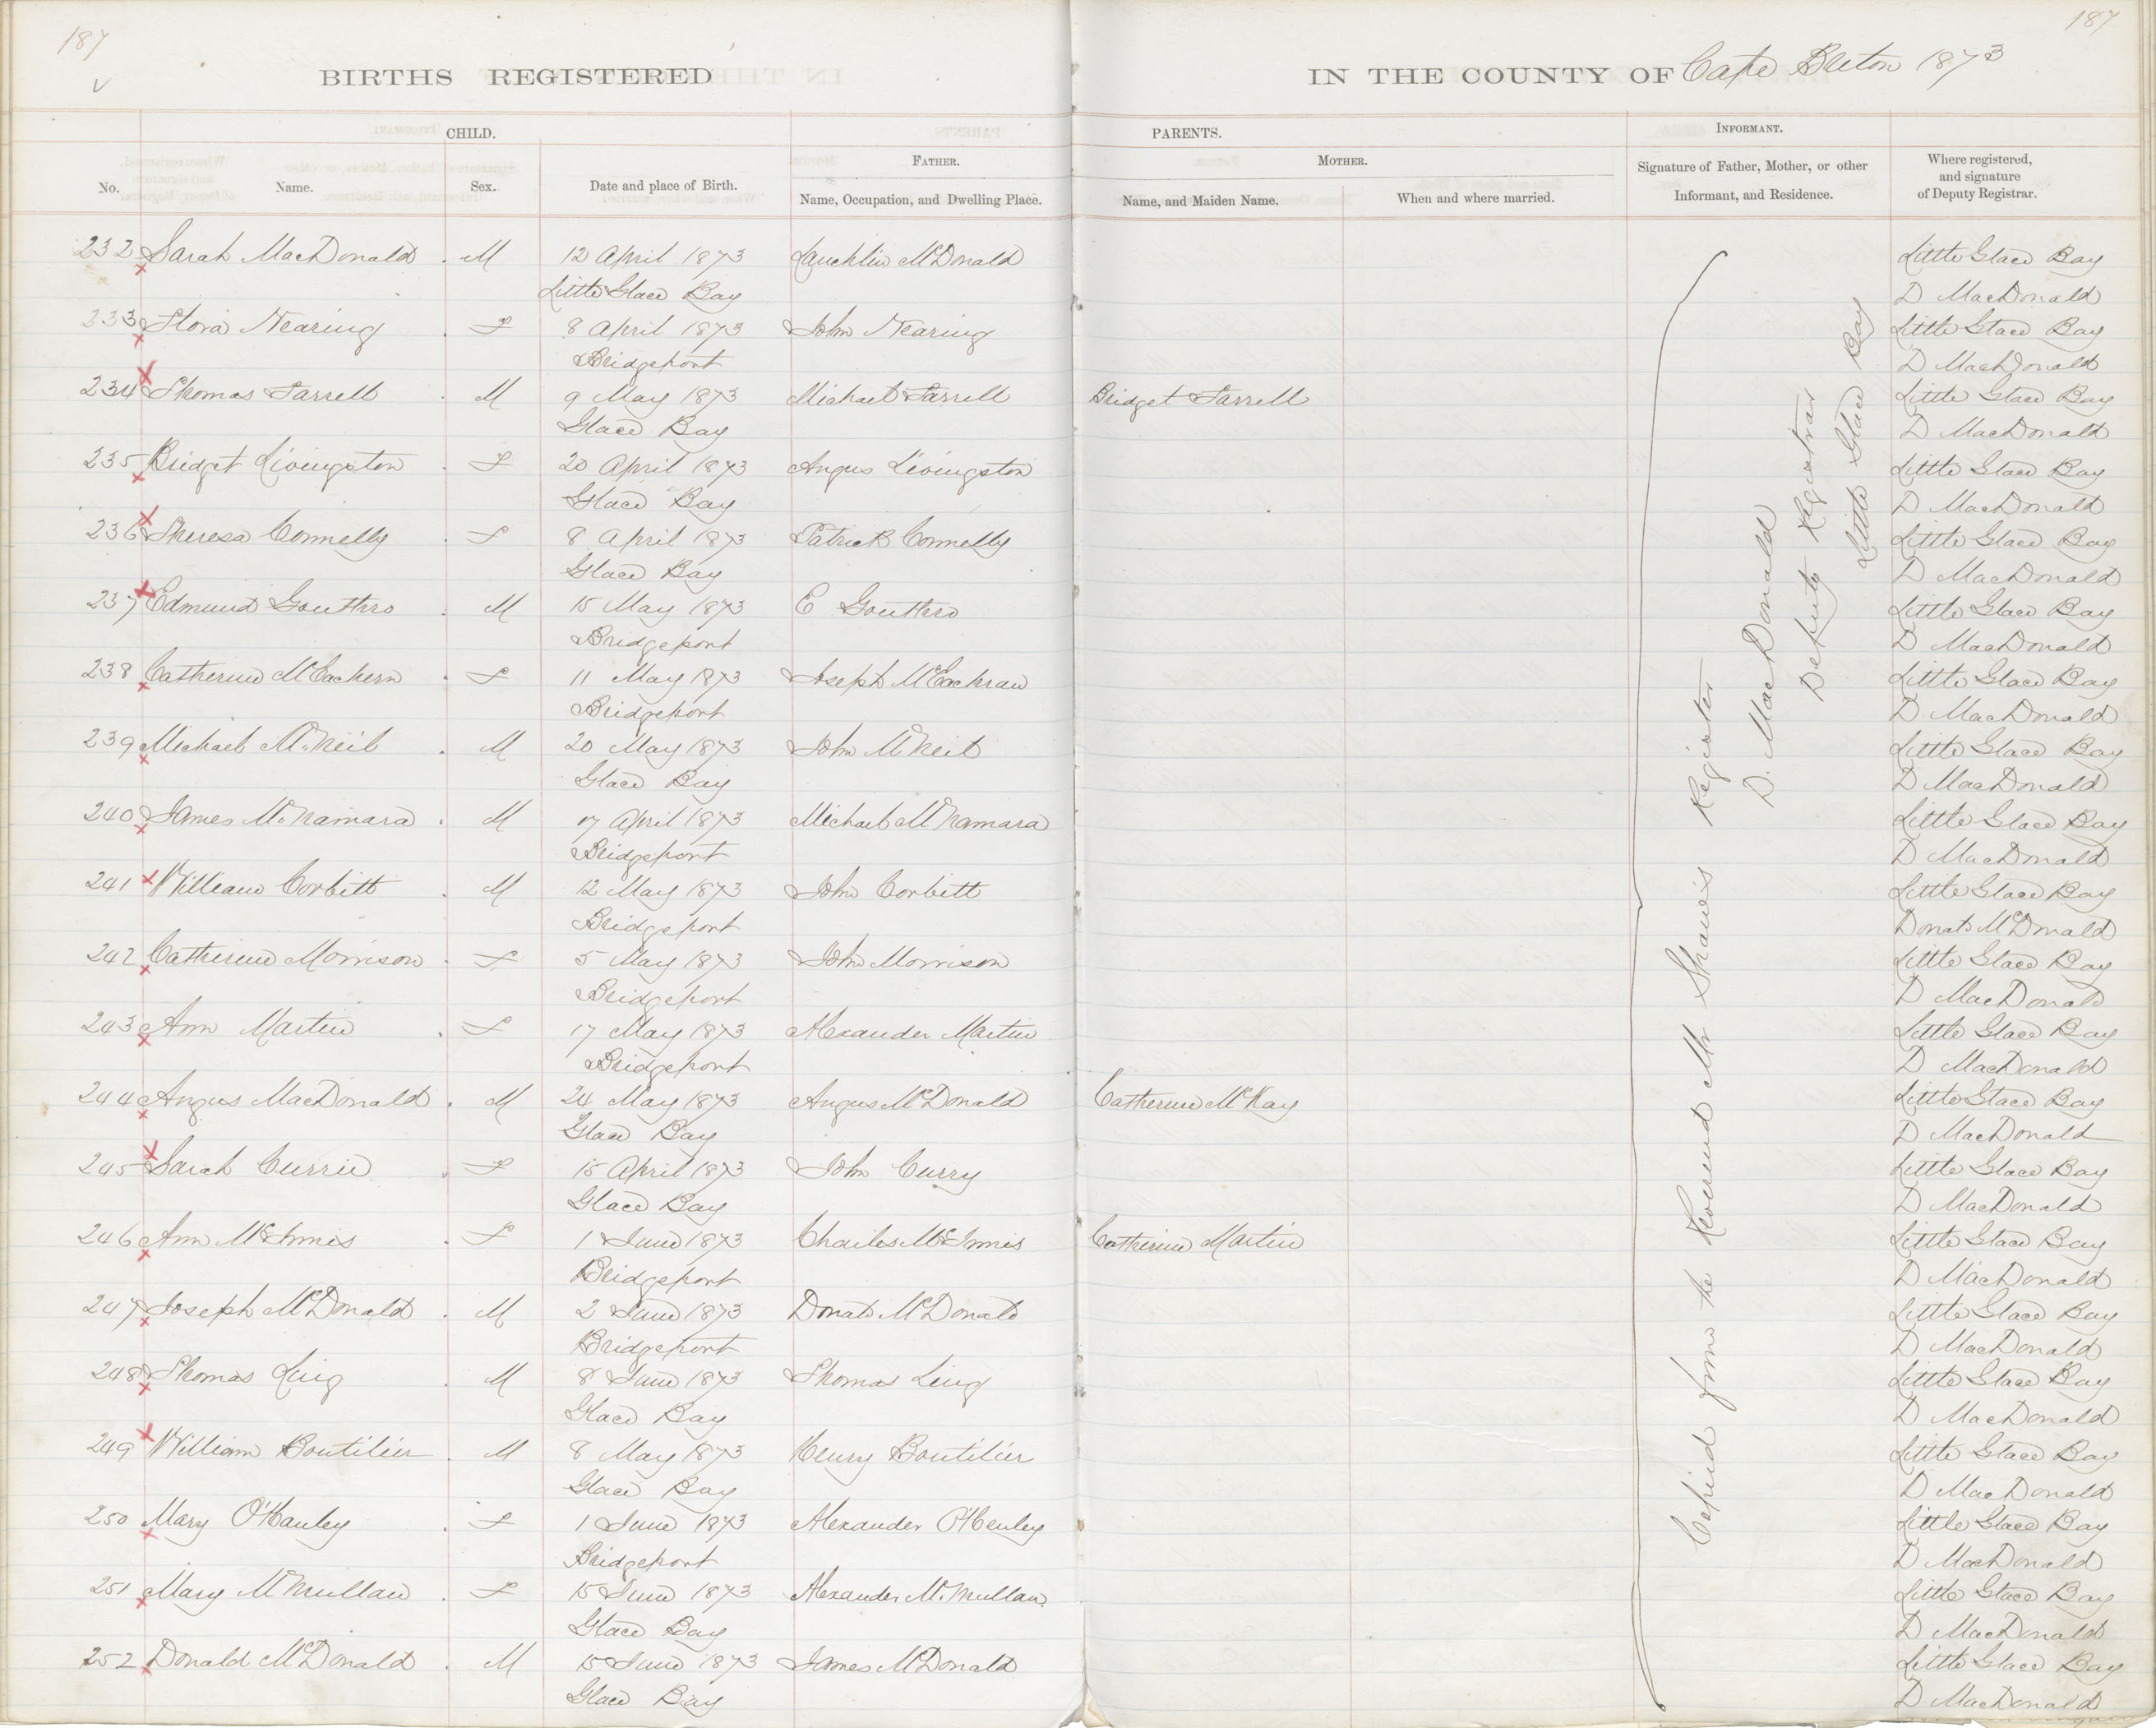 187
187
BIRTHS REGISTERED IN THE COUNTY OF Cape Breton 1873
CHILD. PARENTS. INFORMANT.
FATHER. MOTHER.
No. Name. Sex. Date and place of Birth. Name, Occupation, and Dwelling Place. Name, and Maiden Name. When and where married. Signature of Father, Mother, or other Informant, and Residence. Where registered, and signature of Deputy Registrar.
232 Sarah MacDonald M 12 April 1873 Lauchlin McDonald Little Glace Bay
Little Glace Bay D MacDonald
233 Flora Nearing F 8 April 1873 John Nearing Little Glace Bay
Bridgeport D MacDonald
234 Thomas Farrell M 9 May 1873 Michael Farrell Bridget Farrell Little Glace Bay
Glace Bay D MacDonald
235 Bridget Livingston F 20 April 1873 Angus Livingston Little Glace Bay
Glace Bay D MacDonald
236 Theresa Connelly F 8 April 1873 Patrick Connelly Little Glace Bay
Glace Bay D MacDonald
237 Edmund Gouthro M 15 May 1873 E Gouthro Little Glace Bay
Bridgeport D MacDonald
238 Catherine McEachern F 11 May 1873 Joseph McEachran Little Glace Bay
Bridgeport D MacDonald
239 Michael McNeil M 20 May 1873 John McNeil Little Glace Bay
Glace Bay D MacDonald
240 James McNamara M 17 April 1873 Michael McNamara Little Glace Bay
Bridgeport D MacDonald
241 William Corbitt M 12 May 1873 John Corbitt Little Glace Bay
Bridgeport Donald McDonald
242 Catherine Morrison F 5 May 1873 John Morrison Little Glace Bay
Bridgeport D MacDonald
243 Ann Martin F 17 May 1873 Alexander Martin Little Glace Bay
Bridgeport D MacDonald
244 Angus MacDonald M 24 May 1873 Angus McDonald Catherine McKay Little Glace Bay
Glace Bay D MacDonald
245 Sarah Currie F 15 April 1873 John Curry Little Glace Bay
Glace Bay D MacDonald
246 Ann McInnis F 1 June 1873 Charles McInnis Catherine Martin Little Glace Bay
Bridgeport D MacDonald
247 Joseph McDonald M 2 June 1873 Donald McDonald Little Glace Bay
Bridgeport D MacDonald
248 Thomas Ling M 8 June 1873 Thomas Ling Little Glace Bay
Glace Bay D MacDonald
249 William Boutilier M 8 May 1873 Henry Boutilier Little Glace Bay
Glace Bay D MacDonald
250 Mary O'Hanley F 1 June 1873 Alexander O'Henley Little Glace Bay
Bridgeport D MacDonald
251 Mary McMullan F 15 June 1873 Alexander McMullan Little Glace Bay
Glace Bay D MacDonald
252 Donald McDonald M 15 June 1873 James McDonald Little Glace Bay
Glace Bay D MacDonald
Copied from the Reverend Mr Shaw's Register
D. MacDonald
Deputy Registrar
Little Glace Bay